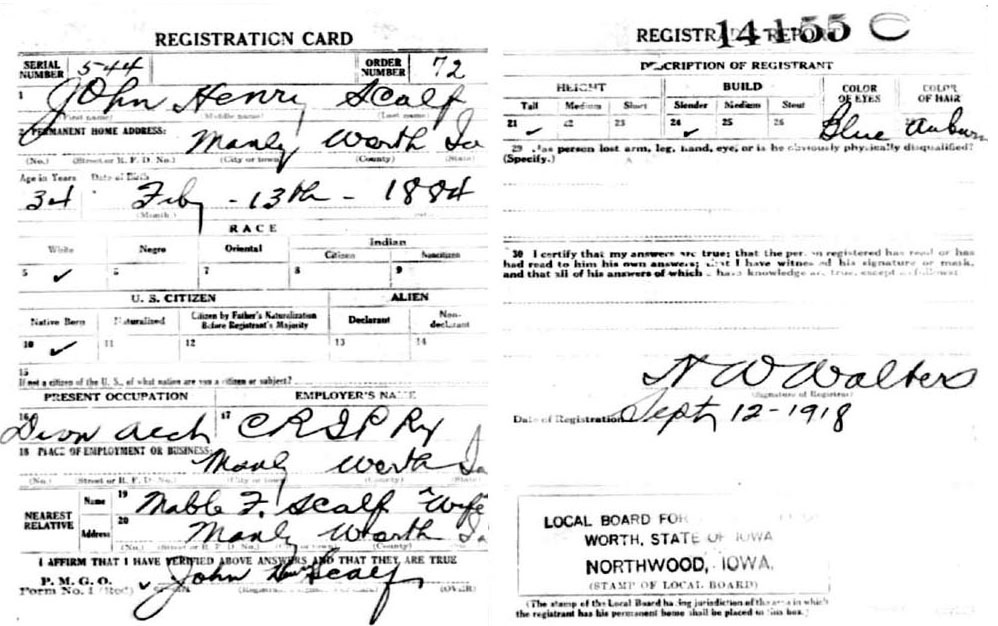 REGISTRATION CARD
SERIAL NUMBER 544 ORDER NUMBER 72
1 John Henry Scalf
(First name) (Middle name) (Last name)
2 PERMANENT HOME ADDRESS:
Manly Worth Ia
(No.) (Street or R. F. D. No.) (City or town) (County) (State)
Age in Years Date of Birth
34 Feby - 13th - 1884
(Month)
RACE
White Negro Oriental Indian
Citizen Noncitizen
5 ✓ 6 7 8 9
U. S. CITIZEN ALIEN
Native Born Naturalized Citizen by Father's Naturalization Before Registrant's Majority Declarant Non-declarant
10 ✓ 11 12 13 14
15
If not a citizen of the U. S., of what nation are you a citizen or subject?
PRESENT OCCUPATION EMPLOYER'S NAME
16 17 C R I & P Ry
18 PLACE OF EMPLOYMENT OR BUSINESS:
Manly Worth Ia
(No.) (Street or R. F. D. No.) (City or town) (County) (State)
NEAREST RELATIVE Name 19 Mable F. Scalf "Wife"
Address 20 Manly Worth Ia
(No.) (Street or R. F. D. No.) (City or town) (County)
I AFFIRM THAT I HAVE VERIFIED ABOVE ANSWERS AND THAT THEY ARE TRUE
P. M. G. O.
Form No. 1 (Red) John Scalf (OVER)
REGISTRAR'S REPORT 14155 C
DESCRIPTION OF REGISTRANT
HEIGHT BUILD COLOR OF EYES COLOR OF HAIR
Tall Medium Short Slender Medium Stout
21 ✓ 22 23 24 ✓ 25 26 Blue Auburn
29 Has person lost arm, leg, hand, eye, or is he obviously physically disqualified?
(Specify.)
30 I certify that my answers are true; that the person registered has read or has
had read to him his own answers; that I have witnessed his signature or mark,
and that all of his answers of which I have knowledge are true, except as follows:
N W Walters
(Signature of Registrar)
Date of Registration Sept 12-1918
LOCAL BOARD FOR
WORTH, STATE OF IOWA
NORTHWOOD, IOWA.
(STAMP OF LOCAL BOARD)
(The stamp of the Local Board having jurisdiction of the area in which
the registrant has his permanent home shall be placed in this box.)